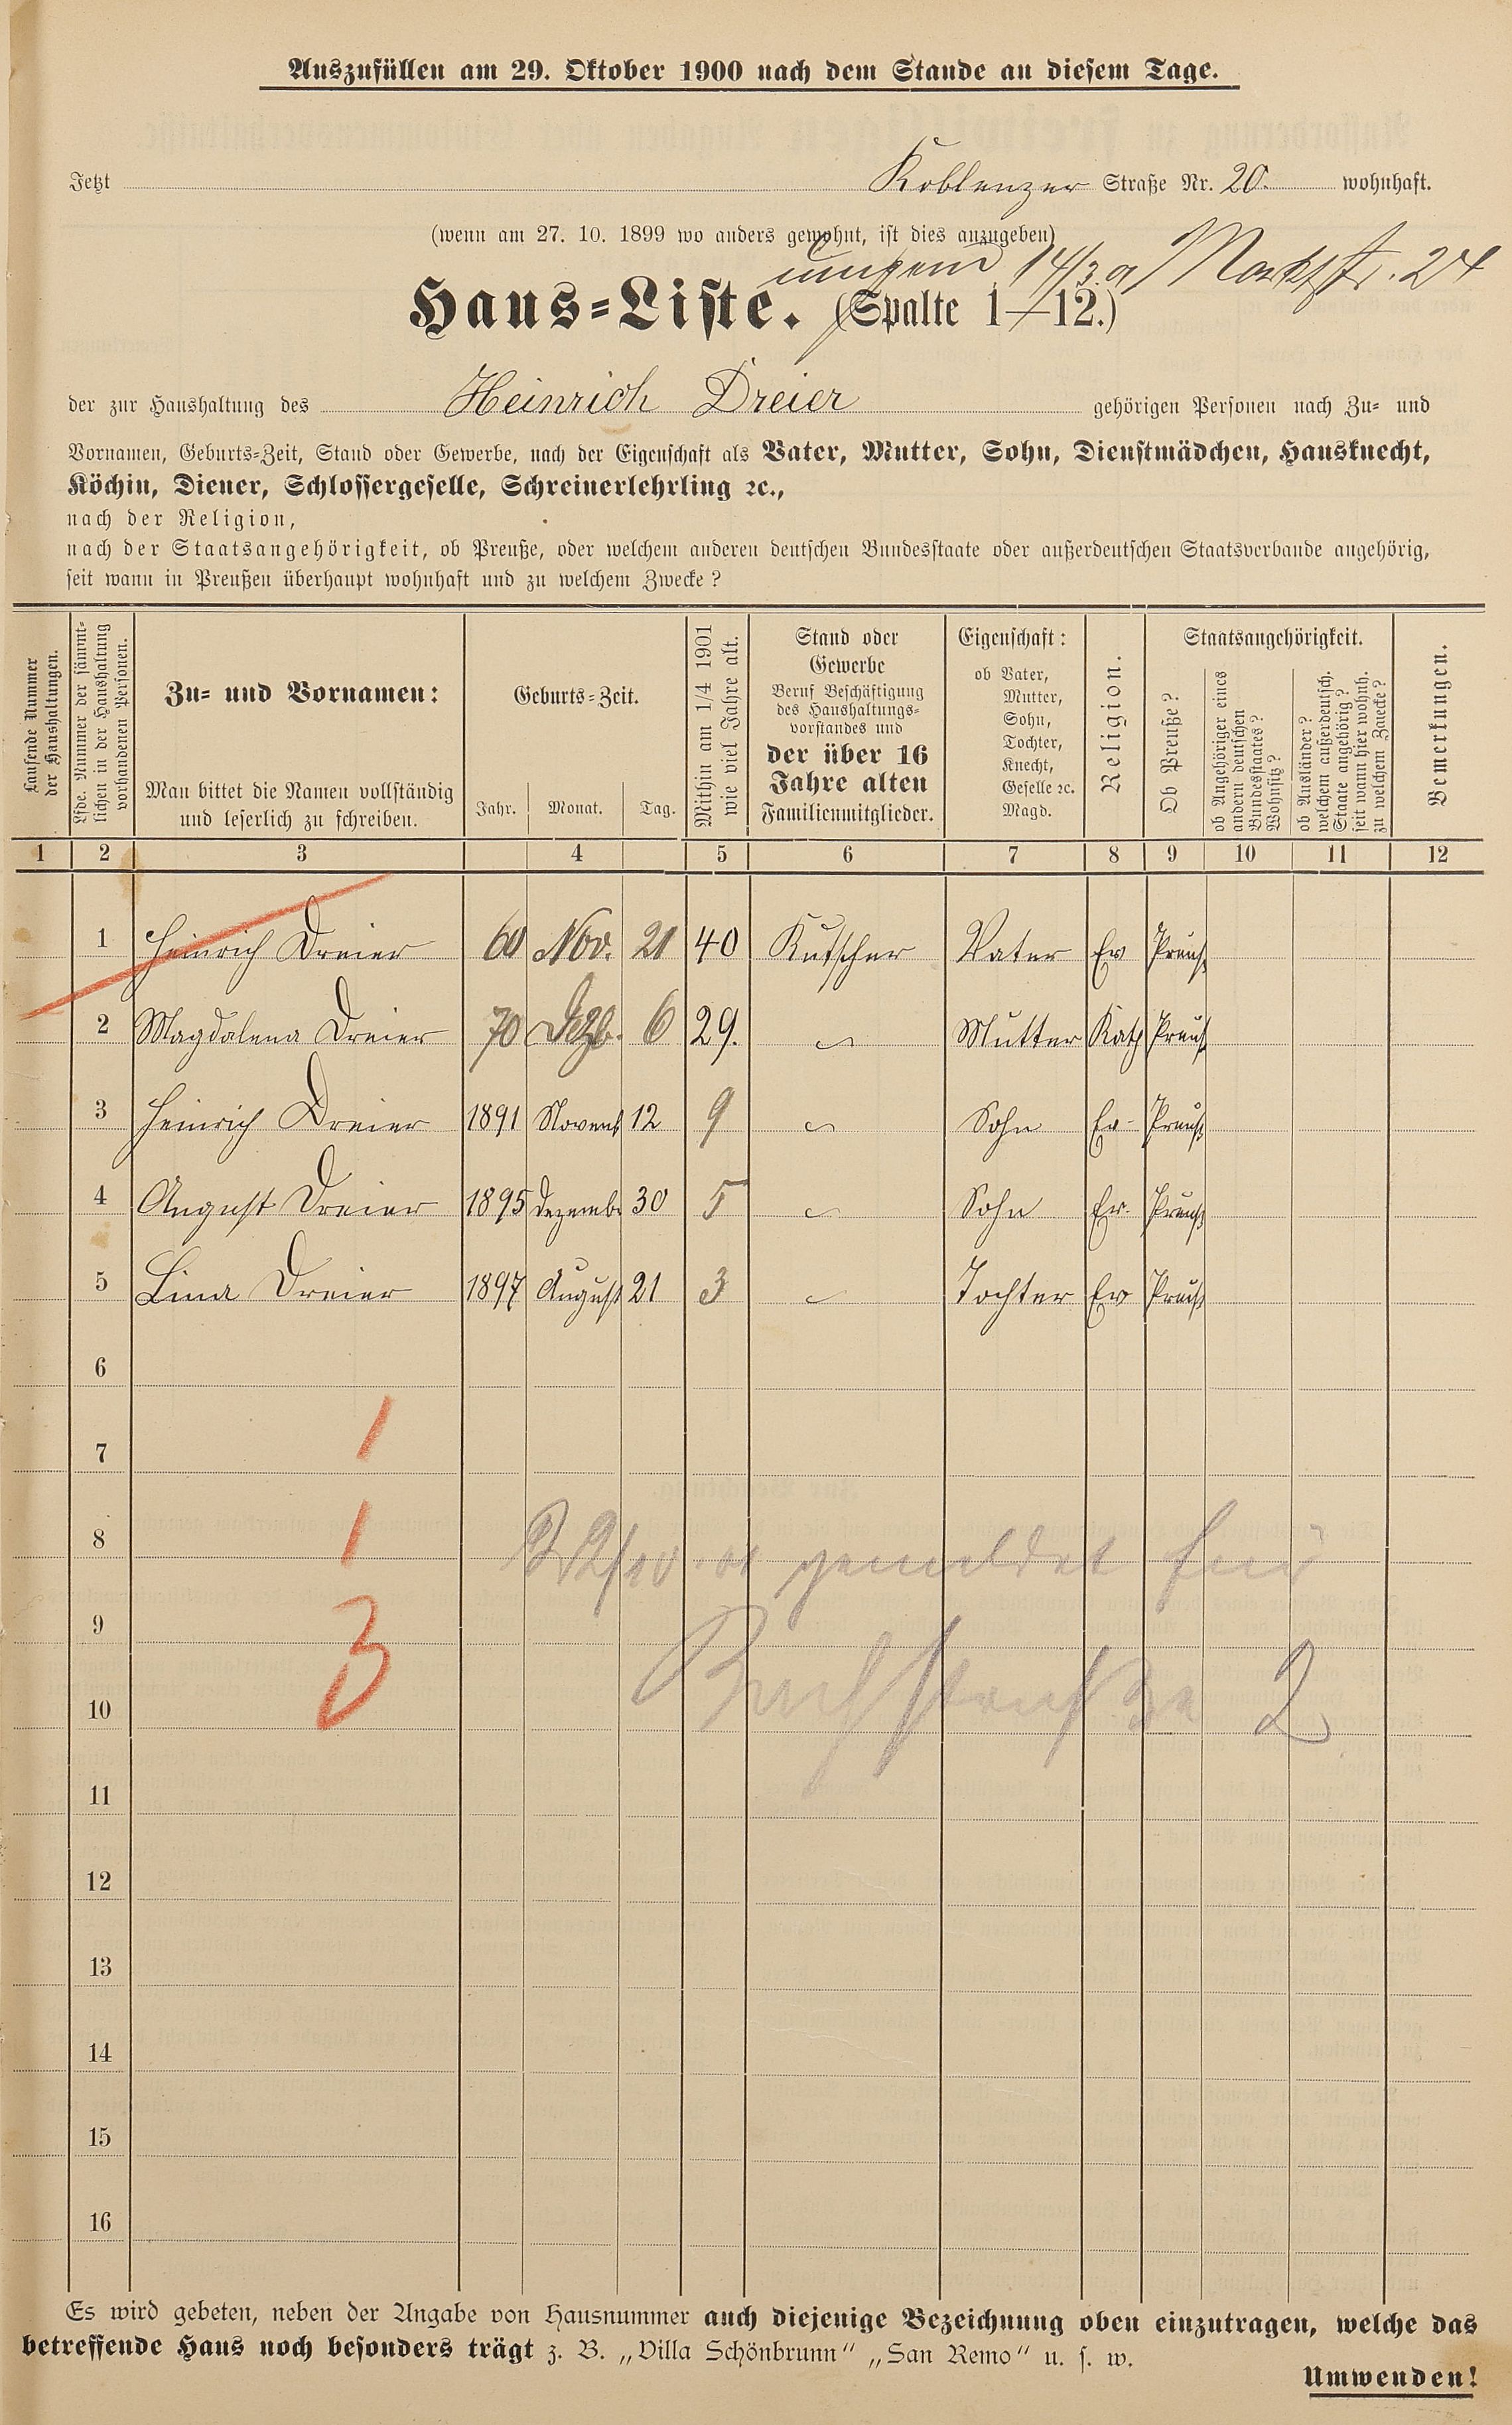 Auszufüllen am 29. Oktober 1900 nach dem Stande an diesem Tage.
Jetzt Koblenzer Straße Nr. 20. wohnhaft.
(wenn am 27. 10. 1899 wo anders gewohnt, ist dies anzugeben)
14/3. 01 Marktstr. 24
Haus-Liste. (Spalte 1—12.)
der zur Haushaltung des Heinrich Dreier gehörigen Personen nach Zu- und
Vornamen, Geburts-Zeit, Stand oder Gewerbe, nach der Eigenschaft als Vater, Mutter, Sohn, Dienstmädchen, Hausknecht,
Köchin, Diener, Schlossergeselle, Schreinerlehrling ꝛc.,
nach der Religion,
nach der Staatsangehörigkeit, ob Preuße, oder welchem anderen deutschen Bundesstaate oder außerdeutschen Staatsverbande angehörig,
seit wann in Preußen überhaupt wohnhaft und zu welchem Zwecke?
Laufende Nummer
der Haushaltungen.
Lfde. Nummer der sämmt-
lichen in der Haushaltung
vorhandenen Personen.
Zu- und Vornamen:
Man bittet die Namen vollständig
und leserlich zu schreiben.
Geburts-Zeit.
Jahr. Monat. Tag.
Mithin am 1/4 1901
wie viel Jahre alt.
Stand oder
Gewerbe
Beruf Beschäftigung
des Haushaltungs-
vorstandes und
der über 16
Jahre alten
Familienmitglieder.
Eigenschaft:
ob Vater,
Mutter,
Sohn,
Tochter,
Knecht,
Geselle ꝛc.
Magd.
Religion.
Staatsangehörigkeit.
Ob Preuße?
ob Angehöriger eines
andern deutschen
Bundesstaates?
Wohnsitz?
ob Ausländer?
welchem außerdeutsch.
Staate angehörig?
seit wann hier wohnh.
zu welchem Zwecke?
Bemerkungen.
1 2 3 4 5 6 7 8 9 10 11 12
1 Heinrich Dreier 60 Nov. 21 40 Kutscher Vater Ev Preuß
2 Magdalena Dreier 70 Dezb. 6 29. Mutter Kath Preuß
3 Heinrich Dreier 1891 Novemb 12 9 Sohn Ev. Preuß
4 August Dreier 1895 Dezembr 30 5 Sohn Ev. Preuß
5 Lina Dreier 1897 August 21 3 Tochter Ev Preuß
6
7 1
8 1 gemeldet für
9 3
10 2
11
12
13
14
15
16
Es wird gebeten, neben der Angabe von Hausnummer auch diejenige Bezeichnung oben einzutragen, welche das
betreffende Haus noch besonders trägt z. B. „Villa Schönbrunn“ „San Remo“ u. s. w.
Umwenden!